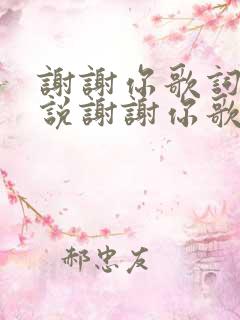 謝謝你歌詞
說謝謝你歌
郝忠友